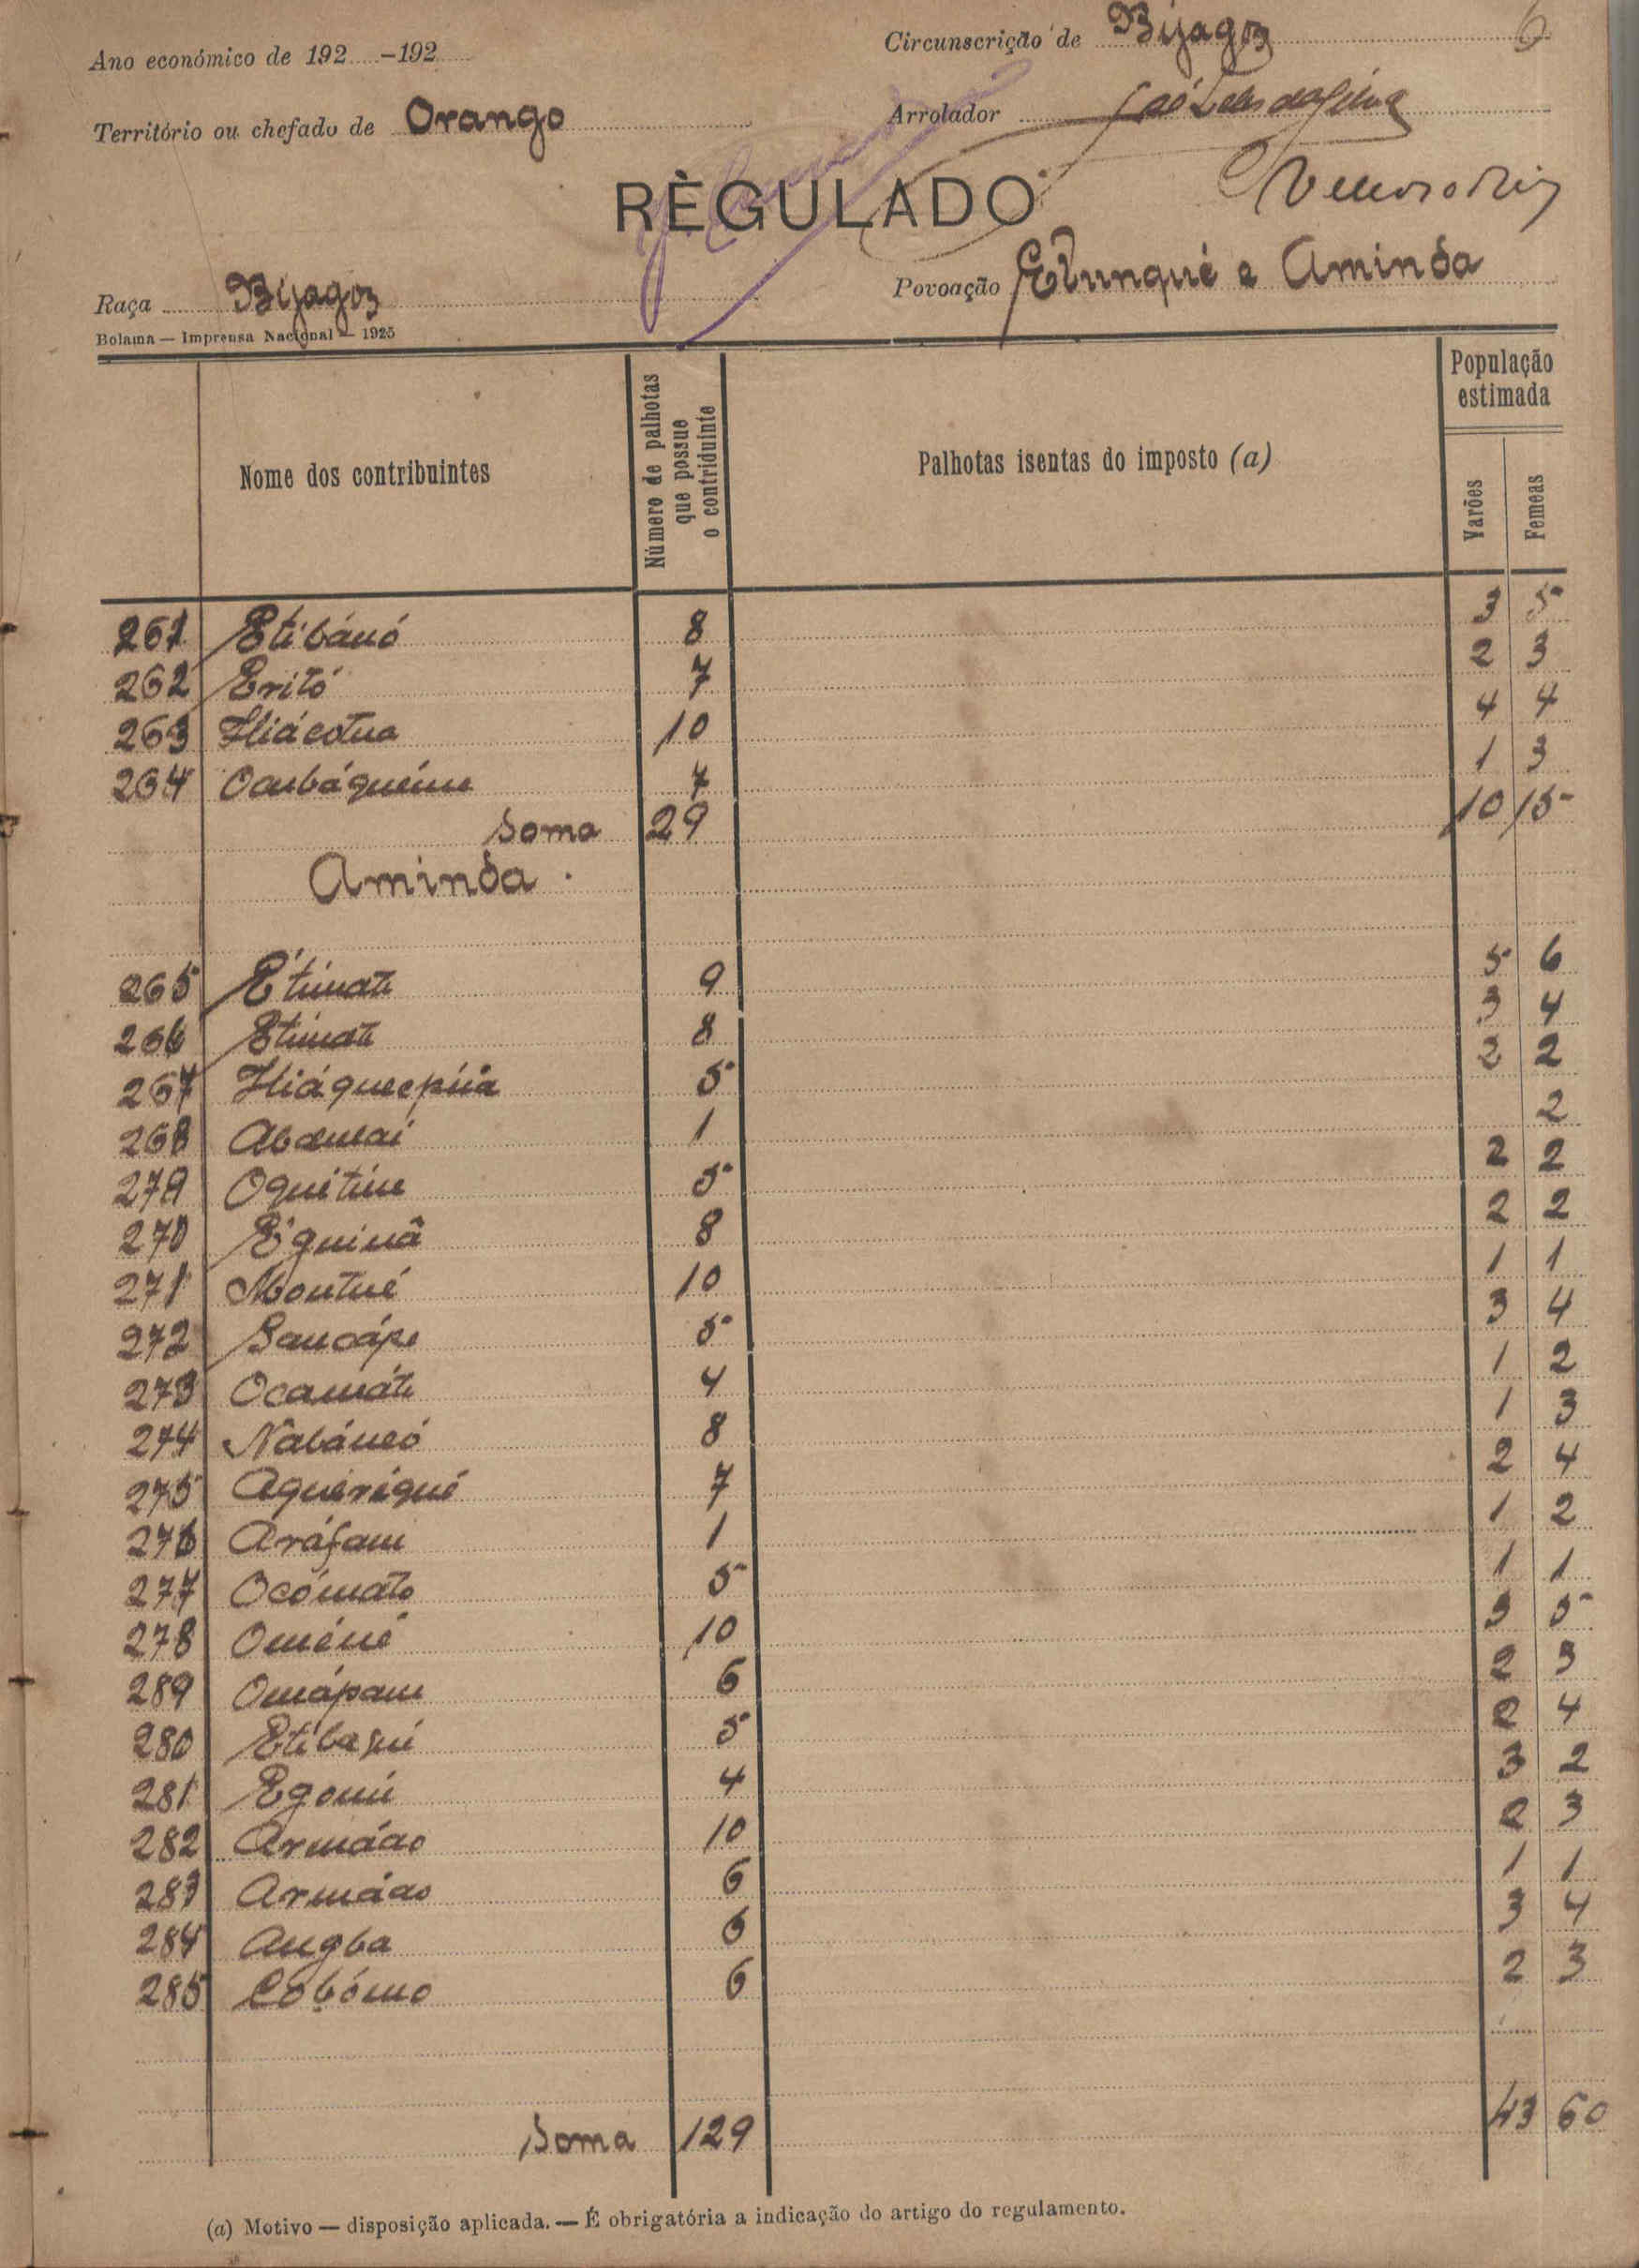 Ano económico de 192 -192
Circunscrição de Bijagoz 6
Território ou chefado de Orango
Arrolador
RÈGULADO
Veloso
Raça Bijagoz
Povoação Etunqué e Aminda
Bolama — Imprensa Nacional — 1925
Nome dos contribuintes
Número de palhotas que possue o contriduinte
Palhotas isentas do imposto (a)
População estimada
Varões
Femeas
261 Etibánó 8 3 5
262 Eritó 7 2 3
263 Iliácotna 10 4 4
264 Ocubáquéune 7 1 3
Soma 29 10 15
Aminda.
265 Étimate 9 5 6
266 Etimate 8 3 4
267 Iliáquecpúia 5 2 2
268 Abdulai 1 2
279 Oquitine 5 2 2
270 Équinâ 8 2 2
271 Montué 10 1 1
272 Sancápe 5 3 4
273 Ocamáte 4 1 2
274 Nâbáneó 8 1 3
275 Aqueriqué 7 2 4
276 Aráfam 1 1 2
277 Ocómato 5 1 1
278 Oméné 10 3 5
289 Omápam 6 2 3
280 Etibasni 5 2 4
281 Egomi 4 3 2
282 Armáao 10 2 3
283 Armáao 6 1 1
284 Angba 6 3 4
285 Cobómo 6 2 3
Soma 129 43 60
(a) Motivo — disposição aplicada. — É obrigatória a indicação do artigo do regulamento.